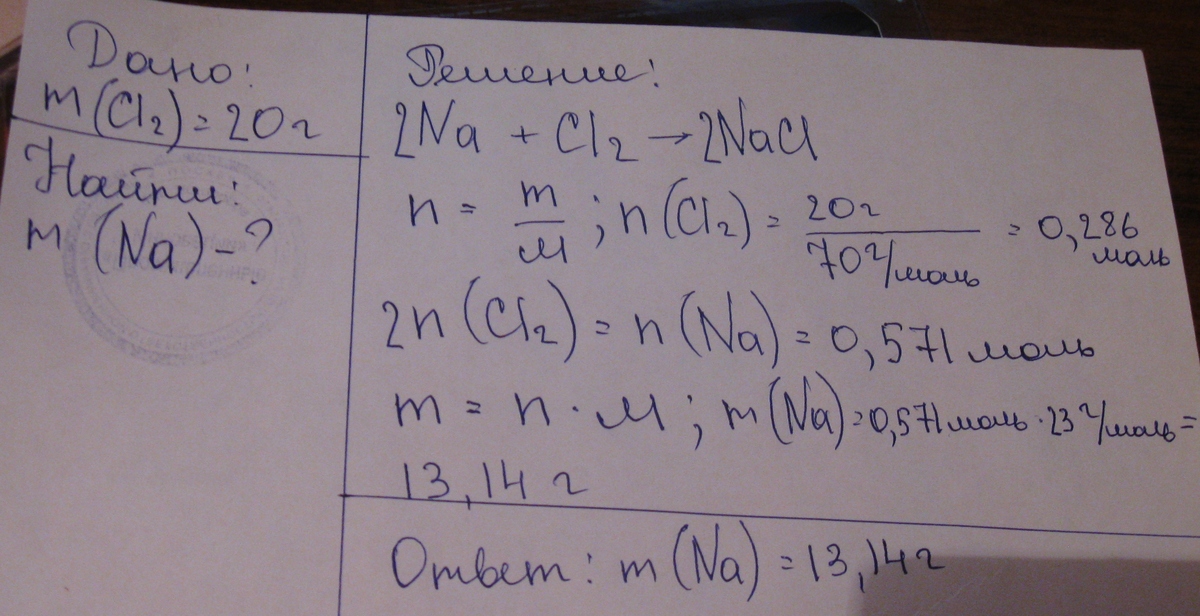 Дано:
m(Cl₂) = 20 г
Найти:
m(Na) – ?
Решение:
2Na + Cl₂ → 2NaCl
n = m/M ; n(Cl₂) = 20 г / 70 г/моль = 0,286 моль
2n(Cl₂) = n(Na) = 0,571 моль
m = n · M ; m(Na) = 0,571 моль · 23 г/моль =
13,14 г
Ответ: m(Na) = 13,14 г